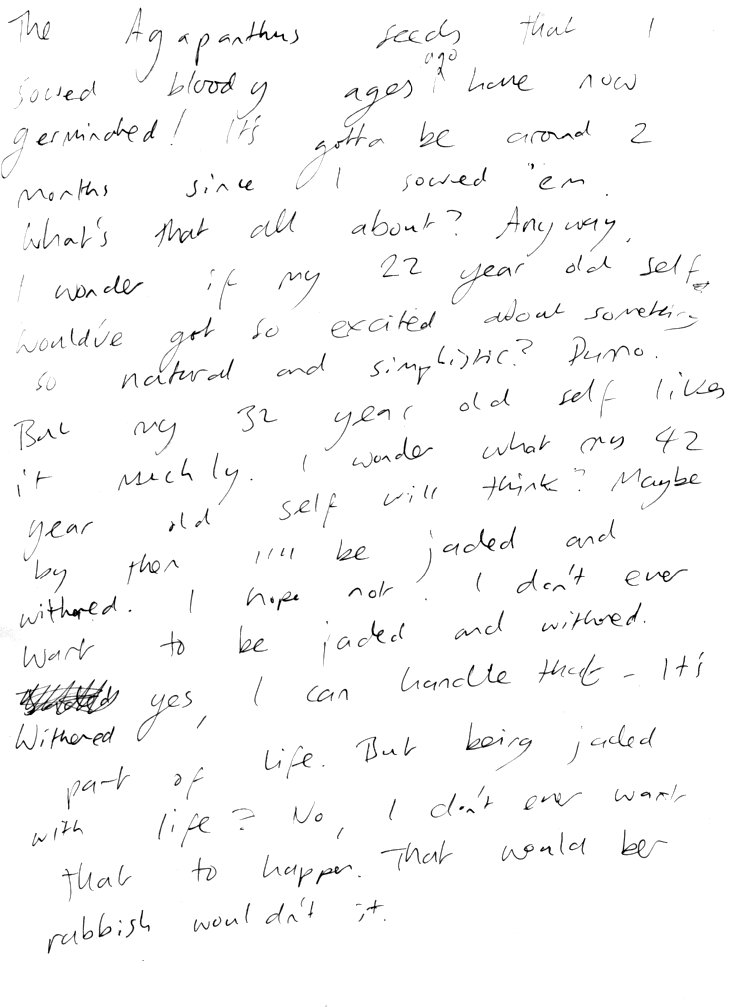 The Agapanthus seeds that I
sowed bloody ages ago have now
germinated! It's gotta be around 2
months since I sowed 'em.
What's that all about? Anyway,
I wonder if my 22 year old self
would've got so excited about something
so natural and simplistic? Dunno.
But my 32 year old self likes
it muchly. I wonder what my 42
year old self will think? Maybe
by then I'll be jaded and
withered. I hope not. I don't ever
want to be jaded and withered.
Withered yes, I can handle that - It's
part of life. But being jaded
with life? No, I don't ever want
that to happen. That would be
rubbish wouldn't it.